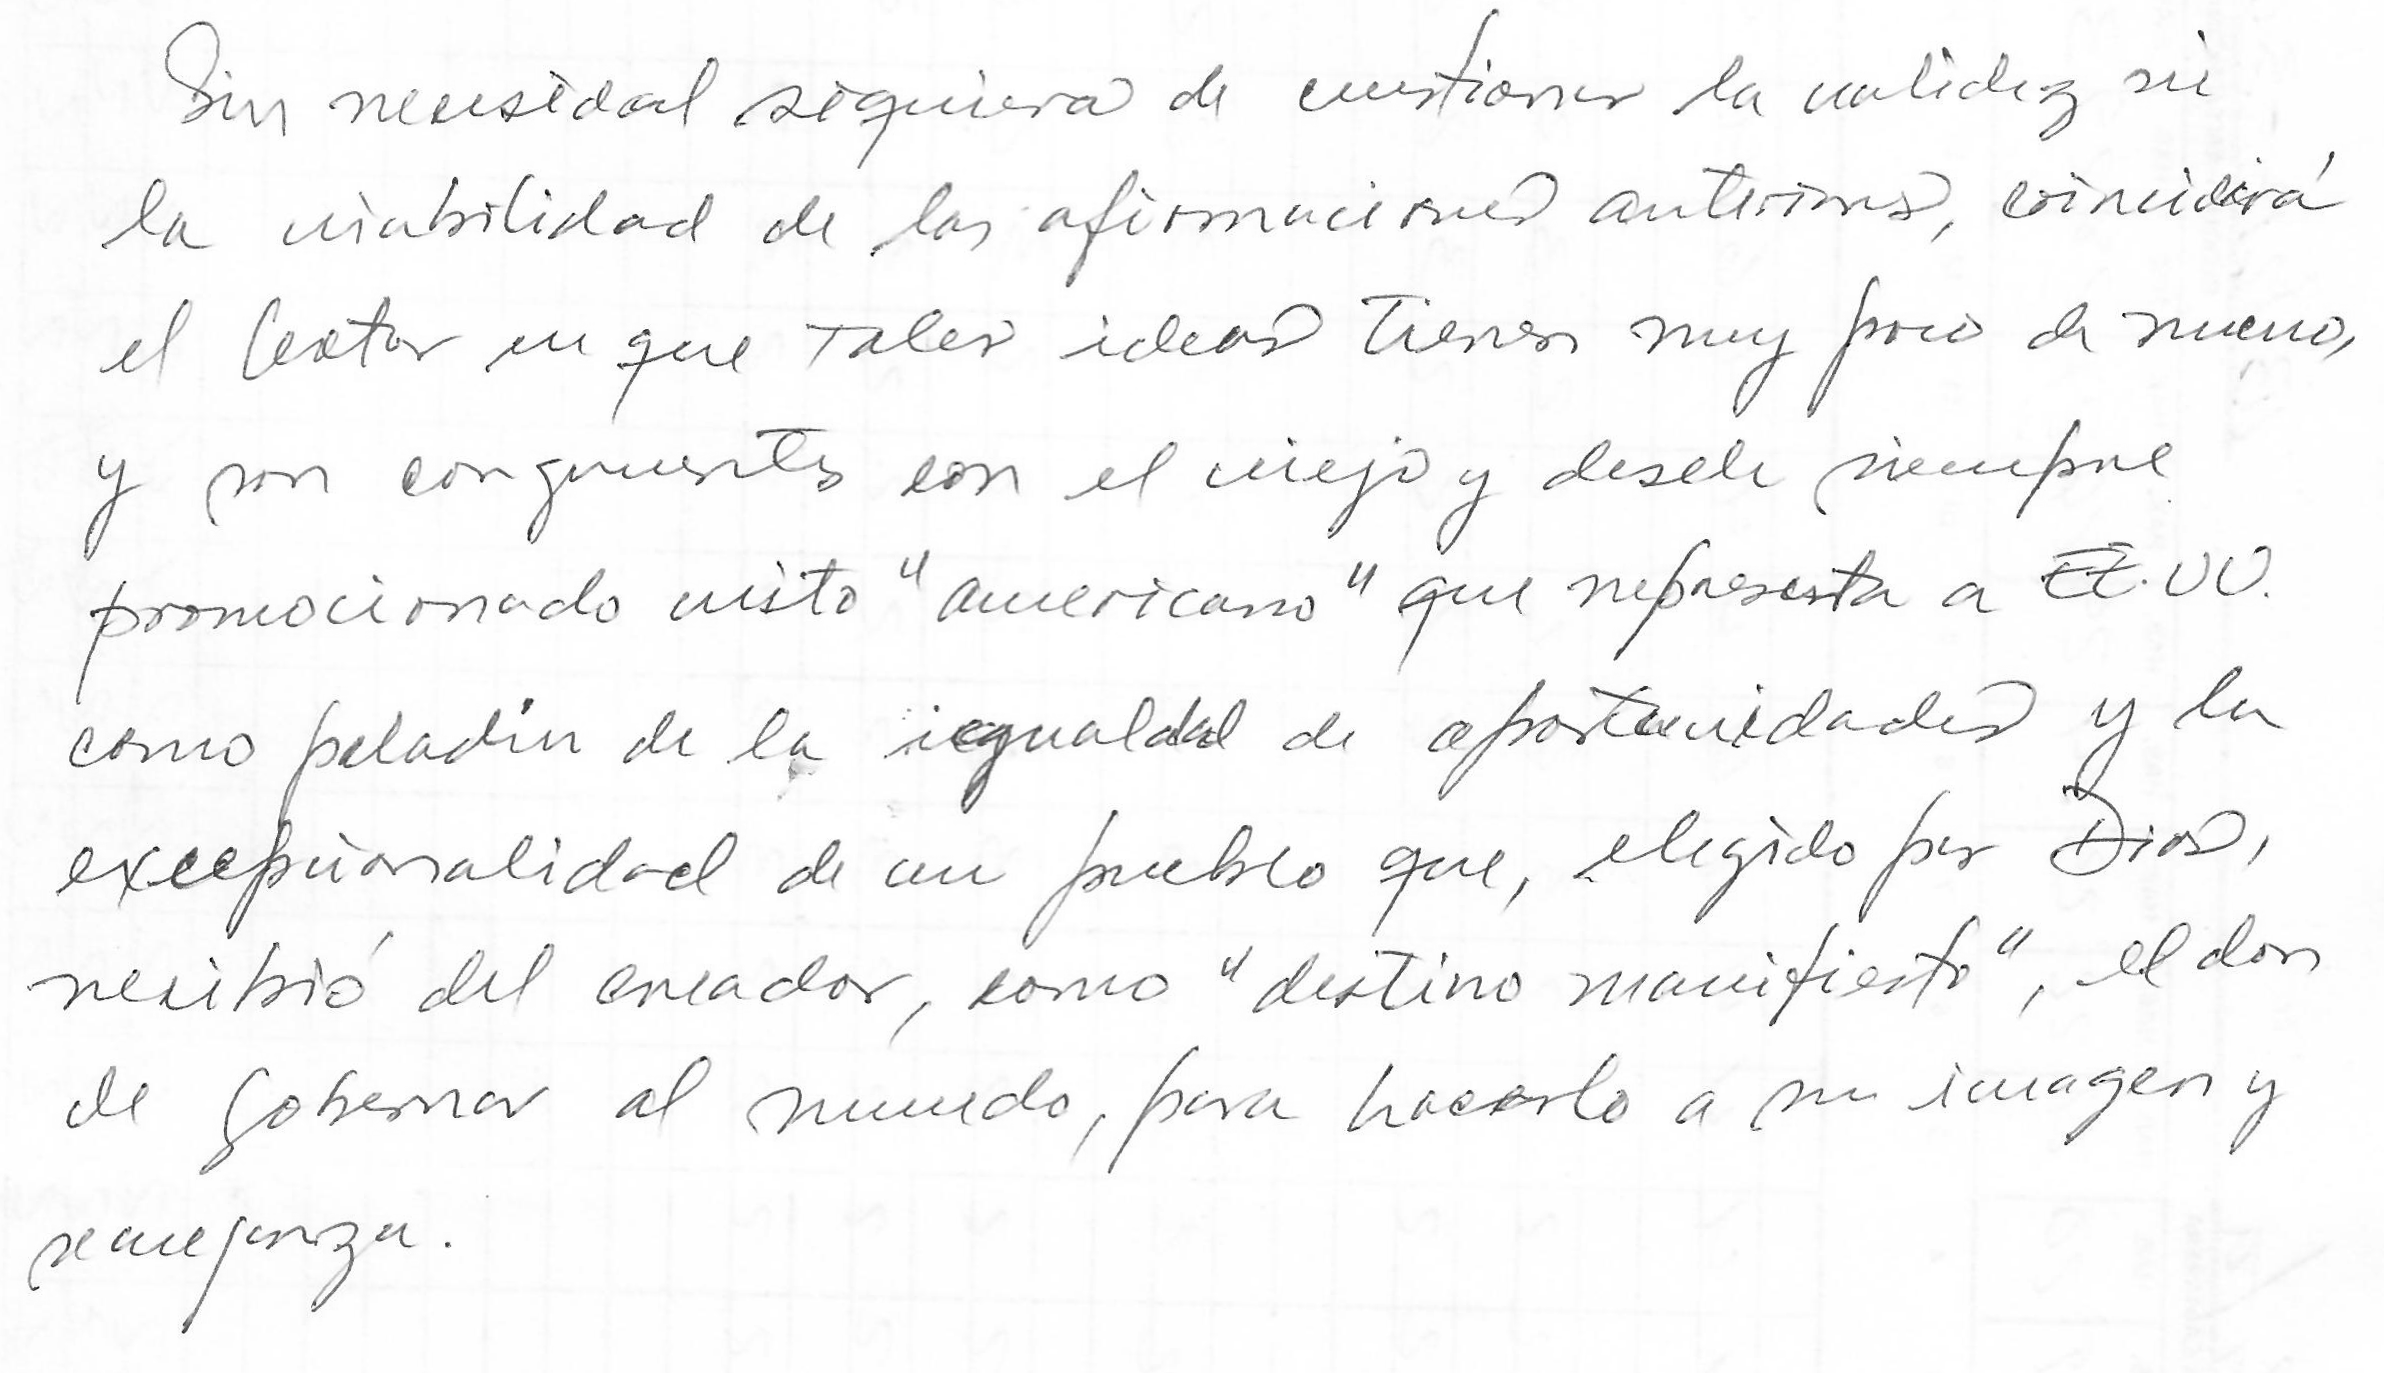 Sin necesidad siquiera de cuestionar la validez ni
la viabilidad de las afirmaciones anteriores, coincidirá
el lector en que tales ideas tienen muy poco de nuevo,
y son congruentes con el viejo y desde siempre
promocionado visto "americano" que representa a EE.UU.
como paladín de la igualdad de oportunidades y la
excepcionalidad de un pueblo que, elegido por Dios,
recibió del creador, como "destino manifiesto", el don
de gobernar al mundo, para hacerlo a su imagen y
semejanza.